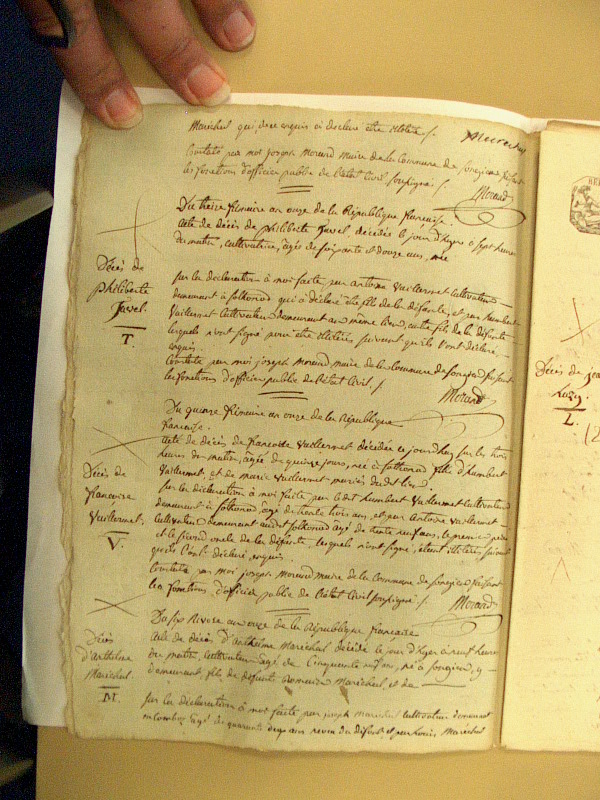 Marechal qui, de ce enquis a déclaré etre illitéré /.
Marechal
Constaté par moi joseph Morand Maire de la Commune de Songieu faisant
les fonctions d'officier public de l'état Civil soussigné. /.
Morand
Du treize frimaire an onze de la République française.
acte de décès de philiberte Javel, décédée le jour d'hyer à sept heures
du matin, cultivatrice, agée de soixante et douze ans, née
Décès de
philiberte
Javel.
T.
sur la declaration à moi faite, par antoine Vuillermet Cultivateur
demeurant à Sothonod qui a déclaré etre fils de la défunte, et par humbert
Vuillermet Cultivateur demeurant au même lieu, autre fils de la défunte
lesquels n'ont signé pour etre illitérés suivant qu'ils l'ont déclaré
enquis.
Constaté par moi joseph Morand maire de la Commune de Songieu faisant
les fonctions d'officier public de l'état Civil /.
Morand
Du quatorze frimaire an onze de la République
française.
acte de décès de francoise Vuillermet décédée ce jourd'huy sur les trois
heures du matin, agée de quinze jours, née à Sothonod fille d'humbert
Vuillermet, et de marie Vuillermet mariés dudit lieu.
Décès de
francoise
Vuillermet.
V.
sur la déclaration à moi faite par le dit humbert Vuillermet Cultivateur
demeurant à Sothonod agé de trente trois ans, et par Antoine Vuillermet
Cultivateur demeurant audit Sothonod agé de trente neuf ans, le premier père
et le second oncle de la défunte, lesquels n'ont signé, etant illitérés, suivant
qu'ils l'ont déclaré enquis.
Constaté par moi joseph Morand maire de la Commune de Songieu faisant
les fonctions d'officier public de l'état Civil soussigné /.
Morand
Du six Nivose an onze de la République francaise
acte de décès d'Anthelme Maréchal décédé le jour d'hyer à neuf heures
du matin, Cultivateur agé de Cinquante ans, né à Songieu, y
demeurant, fils de défunt Marechal et de
Décès
d'Anthelme
Marechal.
M.
sur la déclaration à moi faite par joseph marechal cultivateur demeurant
agé de quarante ans neveu du défunt, et par Marechal
Décès de
Luzy.
L.